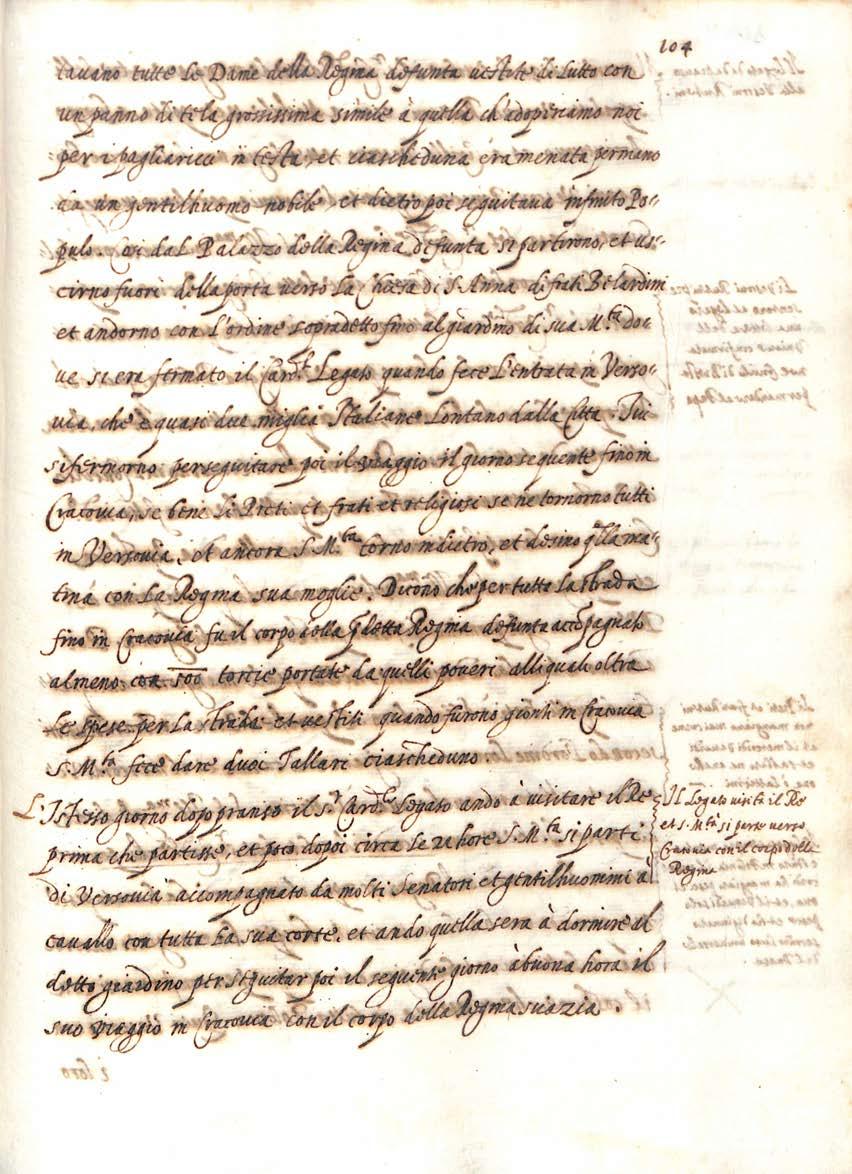 104
tavano tutte le Dame della Regina defunta vestite di lutto con
un panno di tela grossissima simile à quella ch'adoperiamo noi
per i pagliaricci in testa, et ciascheduna era menata per mano
da un gentilhuomo nobile, et dietro poi seguitava infinito Po=
pulo. Cosi dal Palazzo della Regina defunta si partirono, et us=
cirno fuori della porta verso la Chiesa di S. Anna di frati Belardini
et andorno con l'ordine sopradetto fino al giardino di sua M.tà do=
ve si era fermato il Card.l Legato quando fece l'entrata in Verso=
via, che è quasi due miglia Italiane lontano dalla Città. Iui
si fermorno per seguitare poi il viaggio il giorno sequente fino in
Cracovia, se bene li Preti et frati et religiosi se ne tornorno tutti
in Versovia, et ancora S. M.tà torno indietro, et desino q.lla ma=
tina con la Regina sua moglie. Dicono che per tutta la strada
fino in Cracovia fu il corpo della p.detta Regina defunta accōpagnato
almeno con 500 torcie portate da quelli poveri alli quali oltra
le spese per la strada et vestiti quando furono gionti in Cracovia
S. M.tà fece dare duoi Tallari ciascheduno.
L'Istesso giorno dopo pranso il s.r Card.l Legato andò à visitare il Re
prima che partisse, et poco dopoi circa le 21 hore S. M.tà si parti
di Versovia accompagnato da molti Senatori et gentilhuomini à
cavallo con tutta la sua corte, et andò quella sera à dormire al
detto giardino per seguitar poi il seguente giorno à buona hora il
suo viaggio in Cracovia con il corpo della Regina sua zia.
Il Legato visita il Re
et S. M.tà si parte verso
Cracovia con il corpo della
Regina